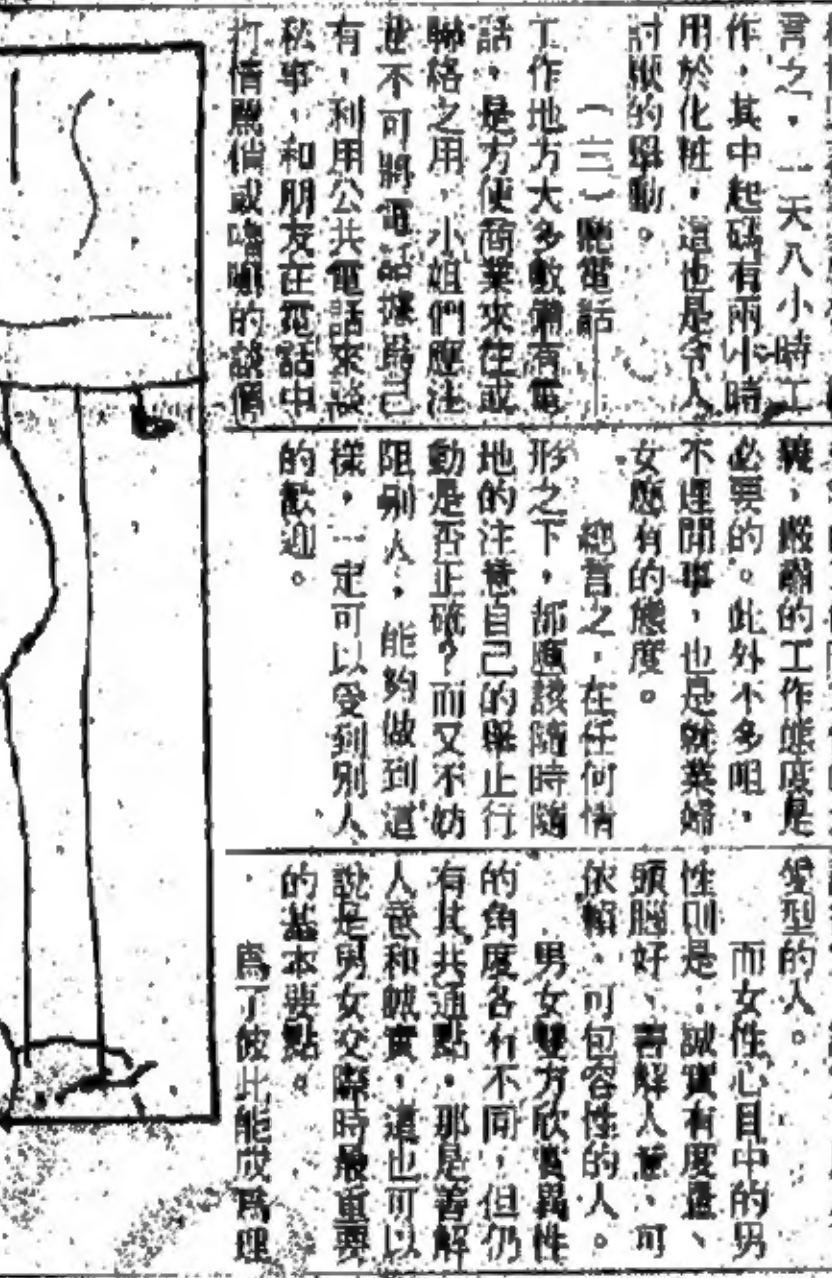 言之，一天八小時工
作，其中起碼有兩小時
用於化粧，這也是令人
討厭的舉動。
（三）聽電話
工作地方大多數備有電
話，是方便商業來往或
聯絡之用，小姐們應注
意不可將電話據為己
有，利用公共電話來談
私事，和朋友在電話中
打情罵俏或嚕囌的談個
嚴肅的工作態度是
必要的。此外不多咀，
不理閒事，也是就業婦
女應有的態度。
總言之，在任何情
形之下，都應該隨時隨
地的注意自己的舉止行
動是否正確？而又不妨
阻別人，能夠做到這
樣，一定可以受到別人
的歡迎。
愛型的人。
而女性心目中的男
性則是：誠實有度量、
頭腦好、善解人意、可
依賴、可包容性的人。
男女雙方欣賞異性
的角度各有不同，但仍
有其共通點，那是善解
人意和誠實，這也可以
說是男女交際時最重要
的基本要點。
為了彼此能成為理